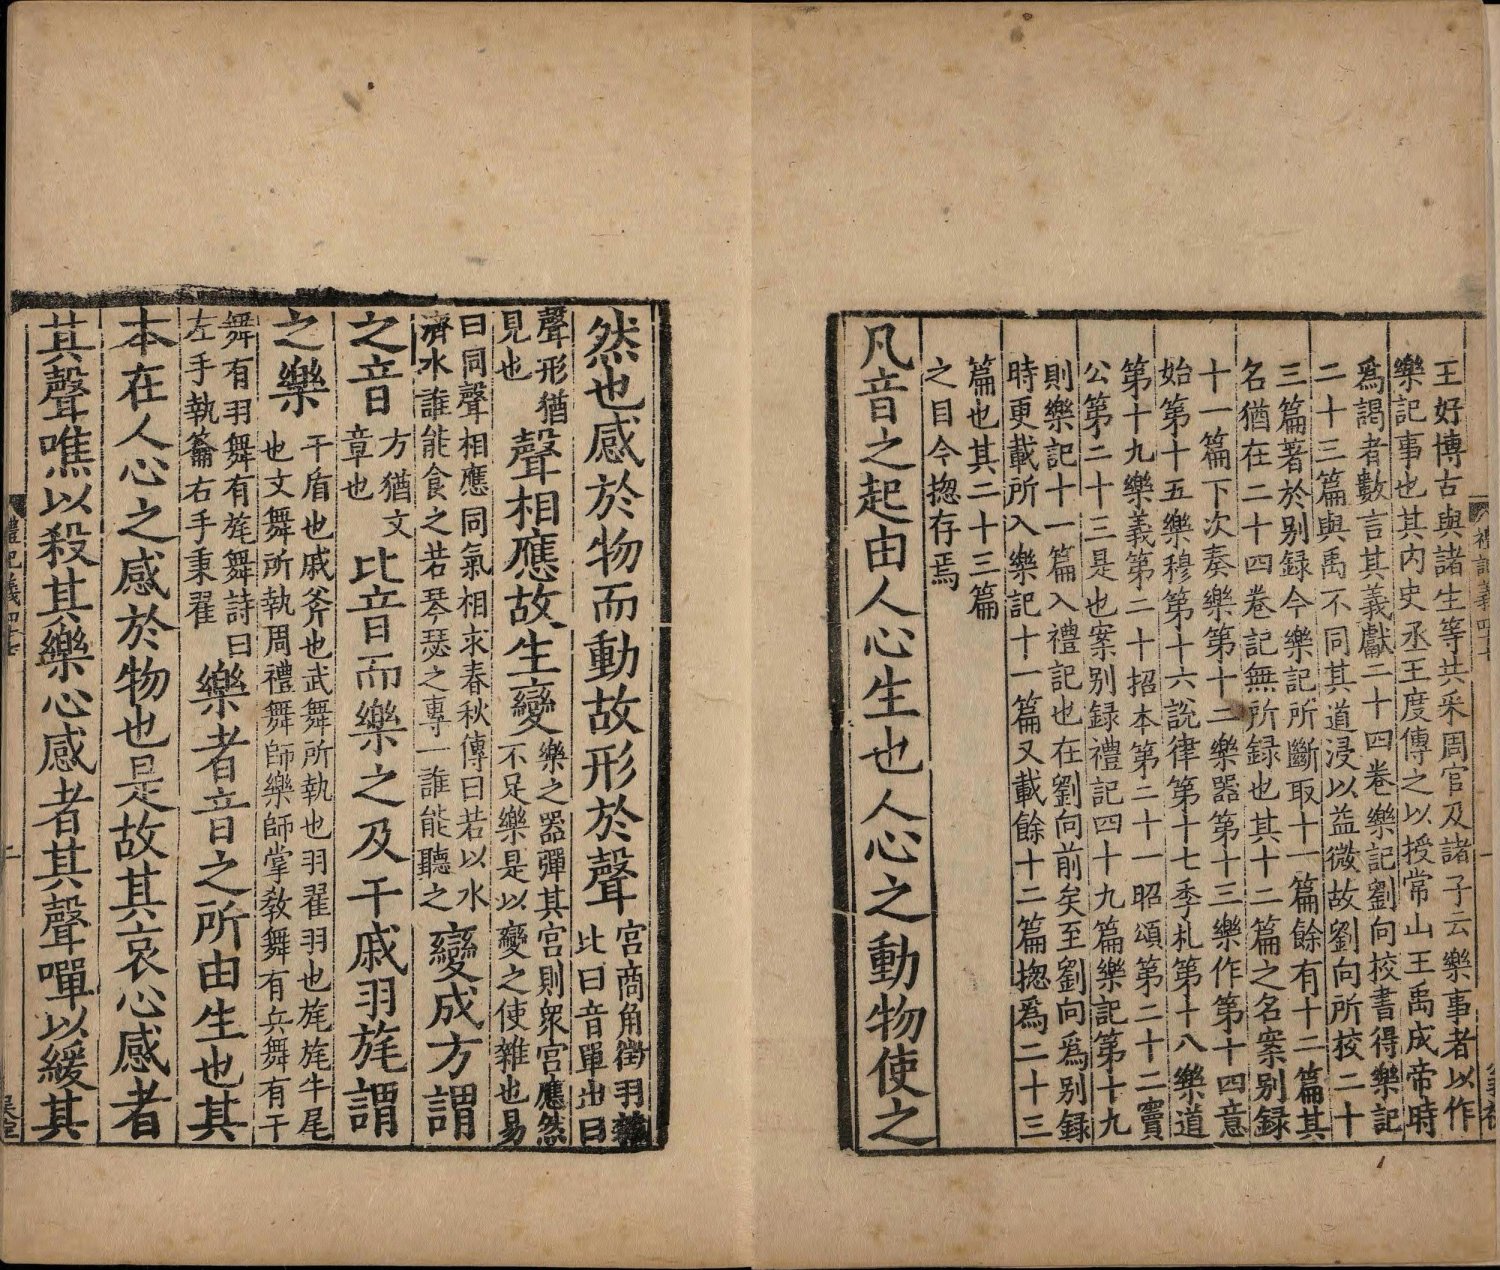 王好博古與諸生等共采周官及諸子云樂事者以作
樂記事也其內史丞王度傳之以授常山王禹成帝時
爲謁者數言其義獻二十四卷樂記劉向校書得樂記
二十三篇與禹不同其道浸以益微故劉向所校二十
三篇著於别録今樂記所斷取十一篇餘有十二篇其
名猶在二十四卷記無所録也其十二篇之名案别録
十一篇下次奏樂第十二樂器第十三樂作第十四意
始第十五樂穆第十六說律第十七季札第十八樂道
第十九樂義第二十招本第二十一昭頌第二十二竇
公第二十三是也案别録禮記四十九篇樂記第十九
則樂記十一篇入禮記也在劉向前矣至劉向爲别録
時更載所入樂記十一篇又載餘十二篇揔爲二十三
篇也其二十三篇
之目今揔存焉
凡音之起由人心生也人心之動物使之
然也感於物而動故形於聲
宮商角徵羽雜
比曰音單出曰
聲形猶
見也
聲相應故生變
樂之器彈其宮則衆宮應然
不足樂是以變之使雜也易
曰同聲相應同氣相求春秋傳曰若以水
濟水誰能食之若琴瑟之專一誰能聽之
變成方謂
之音
方猶文
章也
比音而樂之及干戚羽旄謂
之樂
干盾也戚斧也武舞所執也羽翟羽也旄旄牛尾
也文舞所執周禮舞師樂師掌敎舞有兵舞有干
舞有羽舞有旄舞詩曰
左手執籥右手秉翟
樂者音之所由生也其
本在人心之感於物也是故其哀心感者
其聲噍以殺其樂心感者其聲嘽以緩其
禮記義四十七
一
禮記義四十七
二